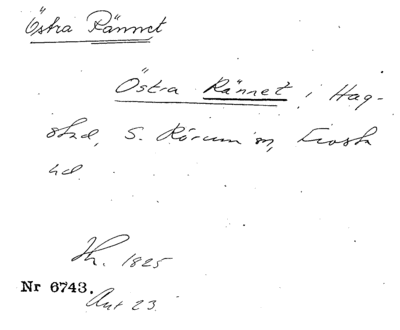 Östra Rännet
Östra Rännet i Hag-
stad, S. Rörum sn, Frosta
hd
Hr. 1825
Nr 6743.
Akt 23.